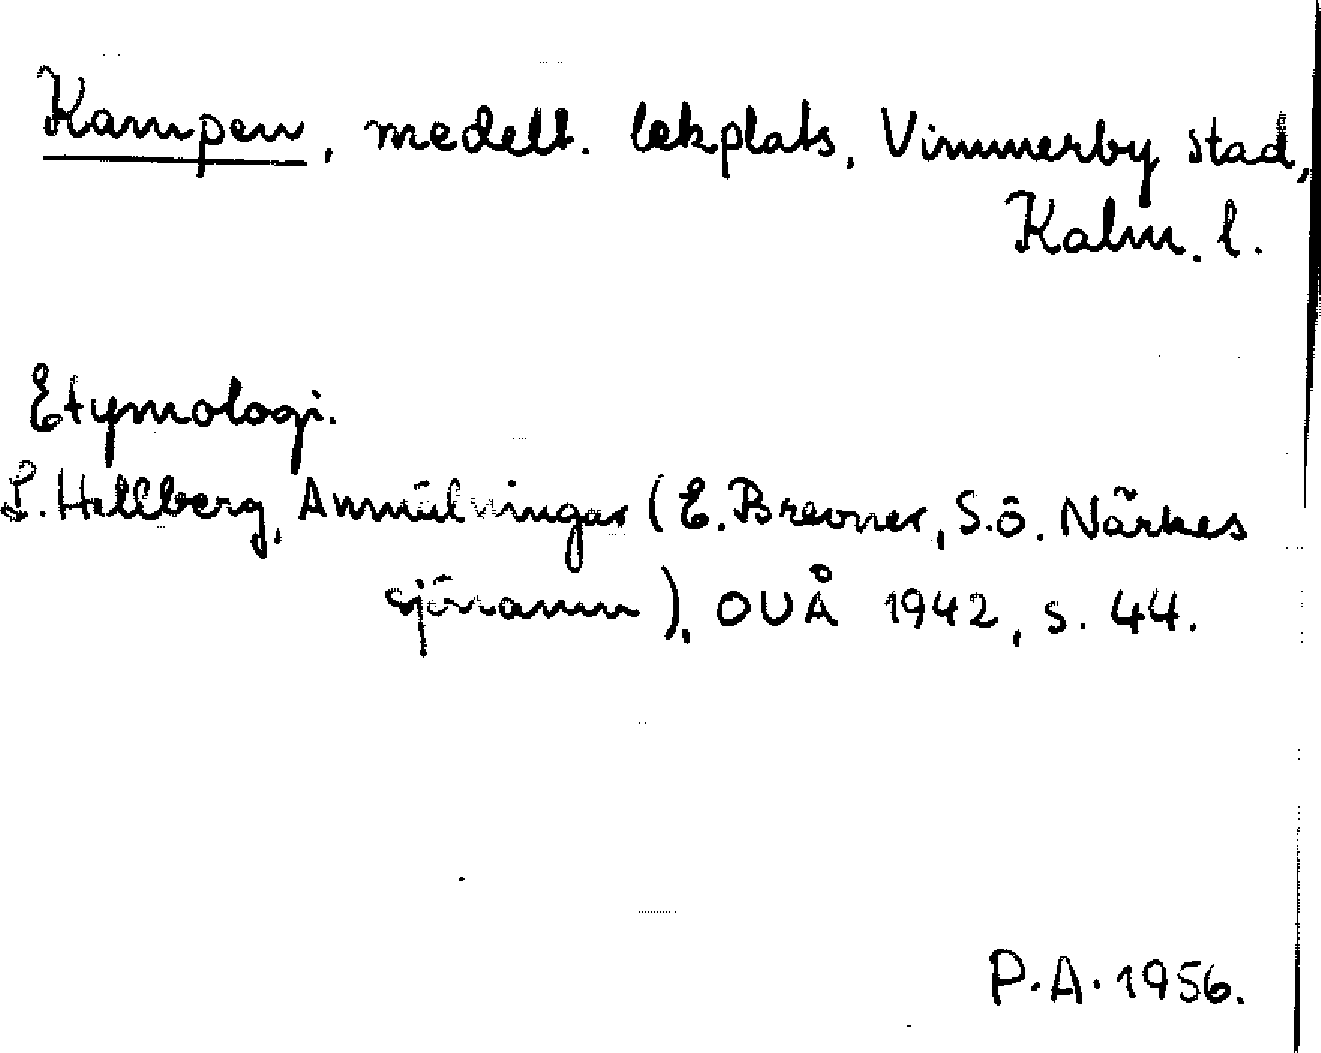 Kampen, medelt. lekplats, Vimmerby stad,
Kalm. l.
Etymologi.
L. Hellberg, Anmälningar (E. Brevner, S.ö. Närkes
sjönamn), OUÅ 1942, s. 44.
P.A. 1956.